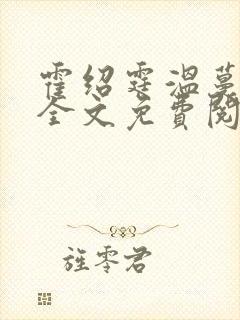 霍绍霆温蔓
全文免费阅
旌零君